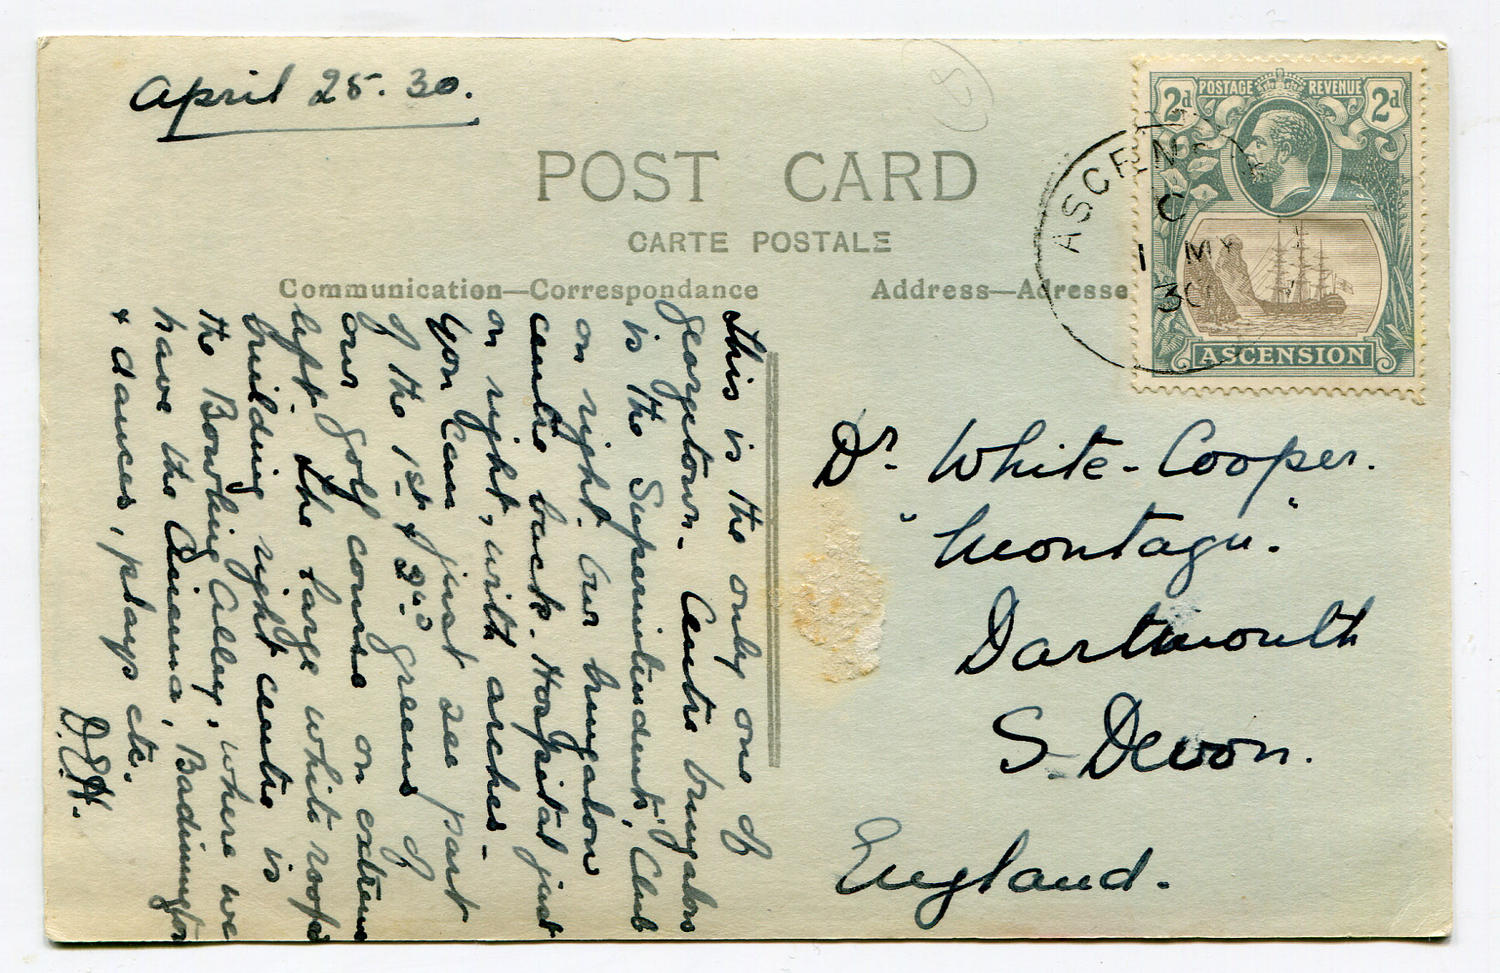 April 25. 30.
POST CARD
CARTE POSTALE
Communication—Correspondance
Address—Adresse
2d POSTAGE REVENUE 2d
ASCENSION
ASCEN
C
1 MY
30
This is the only one of
Georgetown. Centre bungalow
is the Superintendent's, Club
on right. Our bungalow
centre back. Hospital just
on right, with arches.
You can just see part
of the 1st & 2nd greens of
our golf course on extreme
left. The large white roofed
building right centre is
the Bowling Alley, where we
have the Cinema, Badminton
& dances, plays etc.
D.E.H.
Dr. White-Cooper.
"Montagu."
Dartmouth
S. Devon.
England.